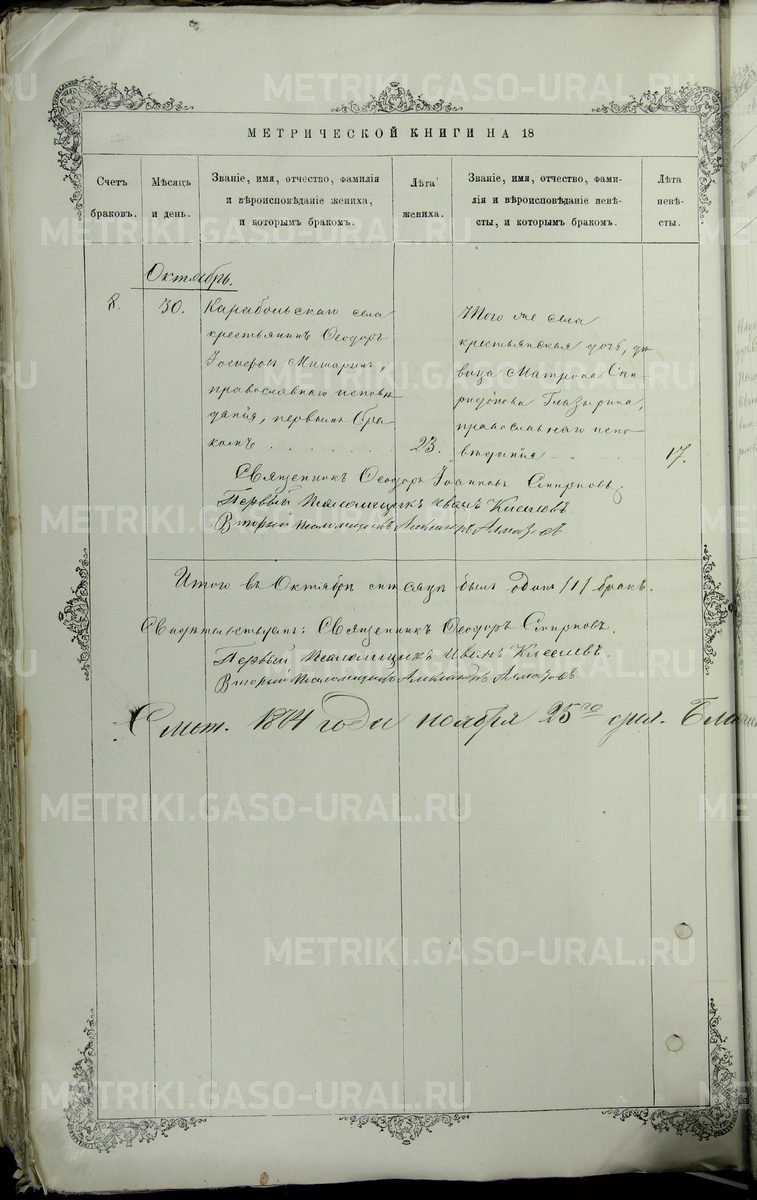 МЕТРИЧЕСКОЙ КНИГИ НА 18
Счетъ
браковъ.
Мѣсяцъ
и день.
Званіе, имя, отчество, фамилія
и вѣроисповѣданіе жениха,
и которымъ бракомъ.
Лѣта
жениха.
Званіе, имя, отчество, фами-
лія и вѣроисповѣданіе невѣ-
сты, и которымъ бракомъ.
Лѣта
невѣ-
сты.
Октябрь.
8.
30.
Карабольскаго села
крестьянинъ Ѳеодоръ
Іосифовъ Мишаринъ,
православнаго исповѣ
данія, первымъ бра
комъ
23.
Того же села
крестьянская дочь, дѣ
вица Матрона Спи
ридонова Глазырина,
православнаго испо
вѣданія
17.
Священникъ Ѳеодоръ Іоанновъ Смирновъ
Первый Псаломщикъ Иванъ Киселевъ
Второй псаломщикъ Александръ Алмазовъ
Итого въ Октябрѣ мѣсяцѣ былъ одинъ /1/ бракъ.
Свидѣтельствуемъ: Священникъ Ѳеодоръ Смирновъ.
Первый Псаломщикъ Иванъ Киселевъ.
Второй Псаломщикъ Александръ Алмазовъ
года ноября 25го дня.
METRIKI.GASO-URAL.RU